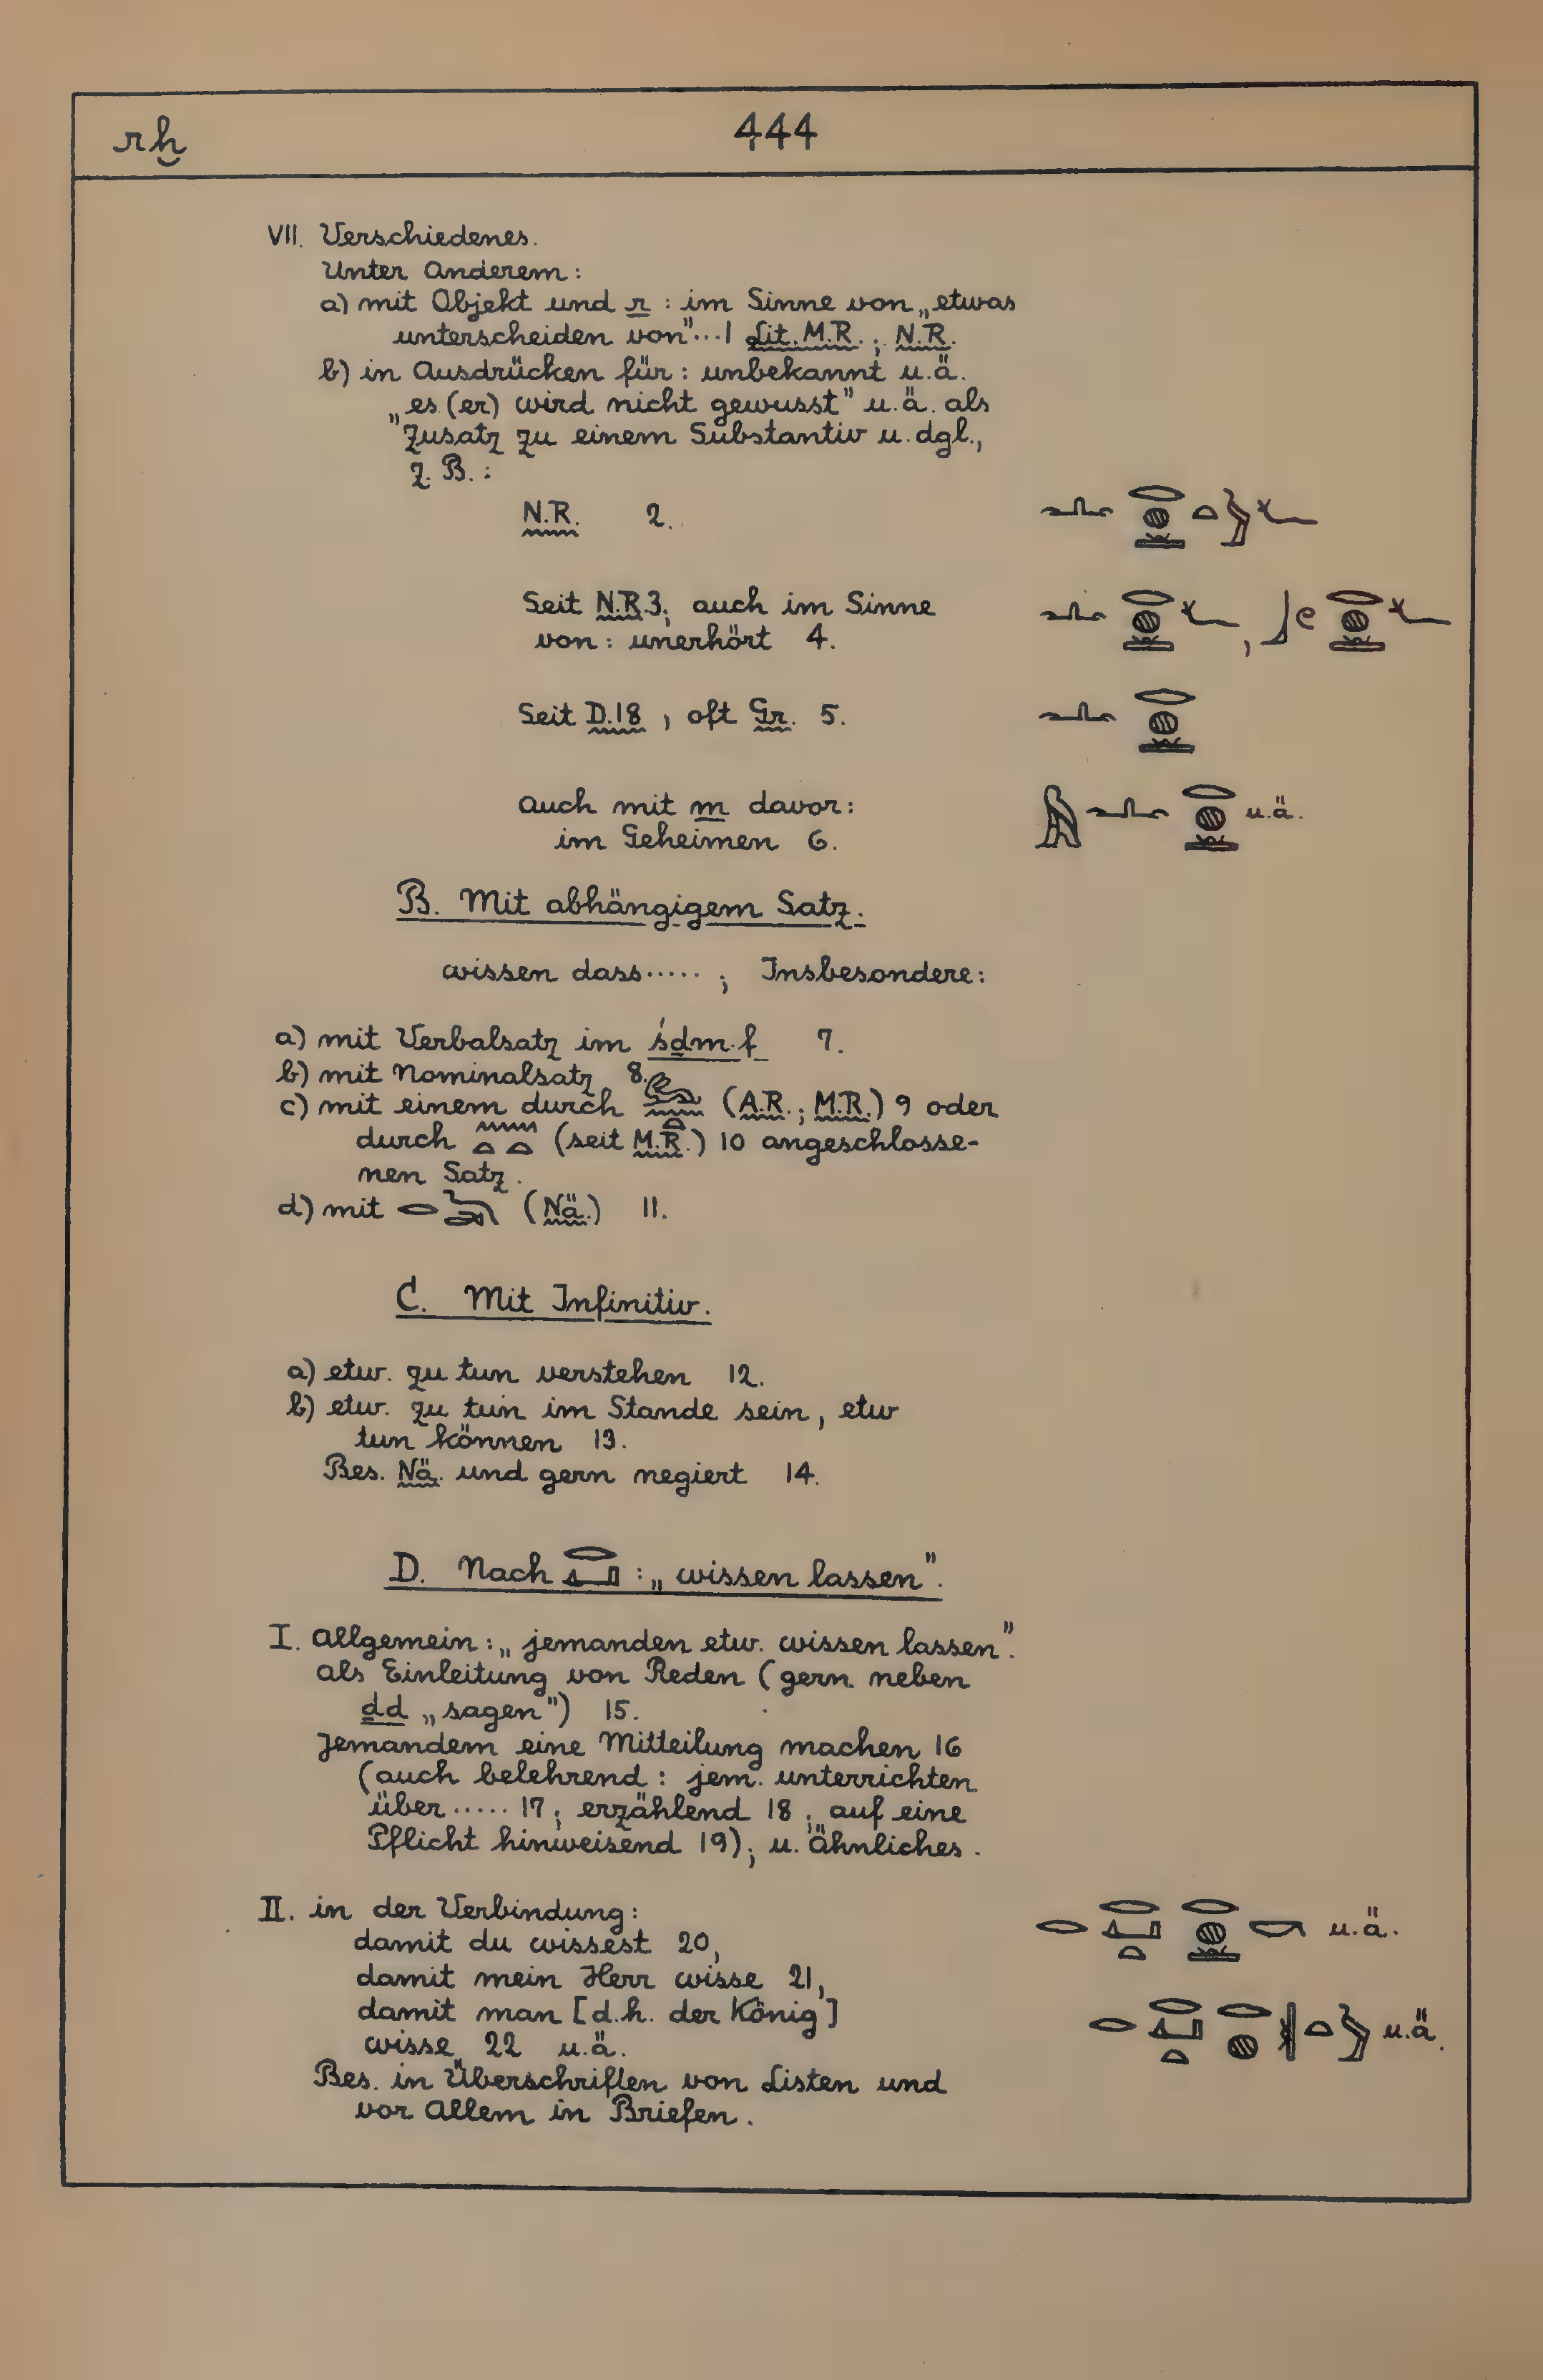 rḫ
444
VII. Verschiedenes.
Unter Anderem:
a) mit Objekt und r : im Sinne von „etwas
unterscheiden von"...1 Lit. M.R.; N.R.
b) in Ausdrücken für: unbekannt u.ä.
„es (er) wird nicht gewusst" u.ä. als
Zusatz zu einem Substantiv u. dgl.,
z. B. :
N.R. 2.
Seit N.R.3; auch im Sinne
von: unerhört 4.
Seit D.18, oft Gr. 5.
auch mit m davor: u.ä.
im Geheimen 6.
B. Mit abhängigem Satz.
wissen dass..... ; Insbesondere:
a) mit Verbalsatz im śḏm.f 7.
b) mit Nominalsatz 8.
c) mit einem durch (A.R.; M.R.) 9 oder
durch (seit M.R.) 10 angeschlosse-
nen Satz.
d) mit (Nä.) 11.
C. Mit Infinitiv.
a) etw. zu tun verstehen 12.
b) etw. zu tun im Stande sein, etw
tun können 13.
Bes. Nä. und gern negiert 14.
D. Nach : „wissen lassen".
I. Allgemein: „jemanden etw. wissen lassen".
als Einleitung von Reden (gern neben
ḏd „sagen") 15.
Jemandem eine Mitteilung machen 16
(auch belehrend: jem. unterrichten
über ..... 17; erzählend 18; auf eine
Pflicht hinweisend 19); u. ähnliches.
II. in der Verbindung: u.ä.
damit du wissest 20,
damit mein Herr wisse 21,
damit man [d.h. der König] u.ä.
wisse 22 u.ä.
Bes. in Überschriften von Listen und
vor Allem in Briefen.